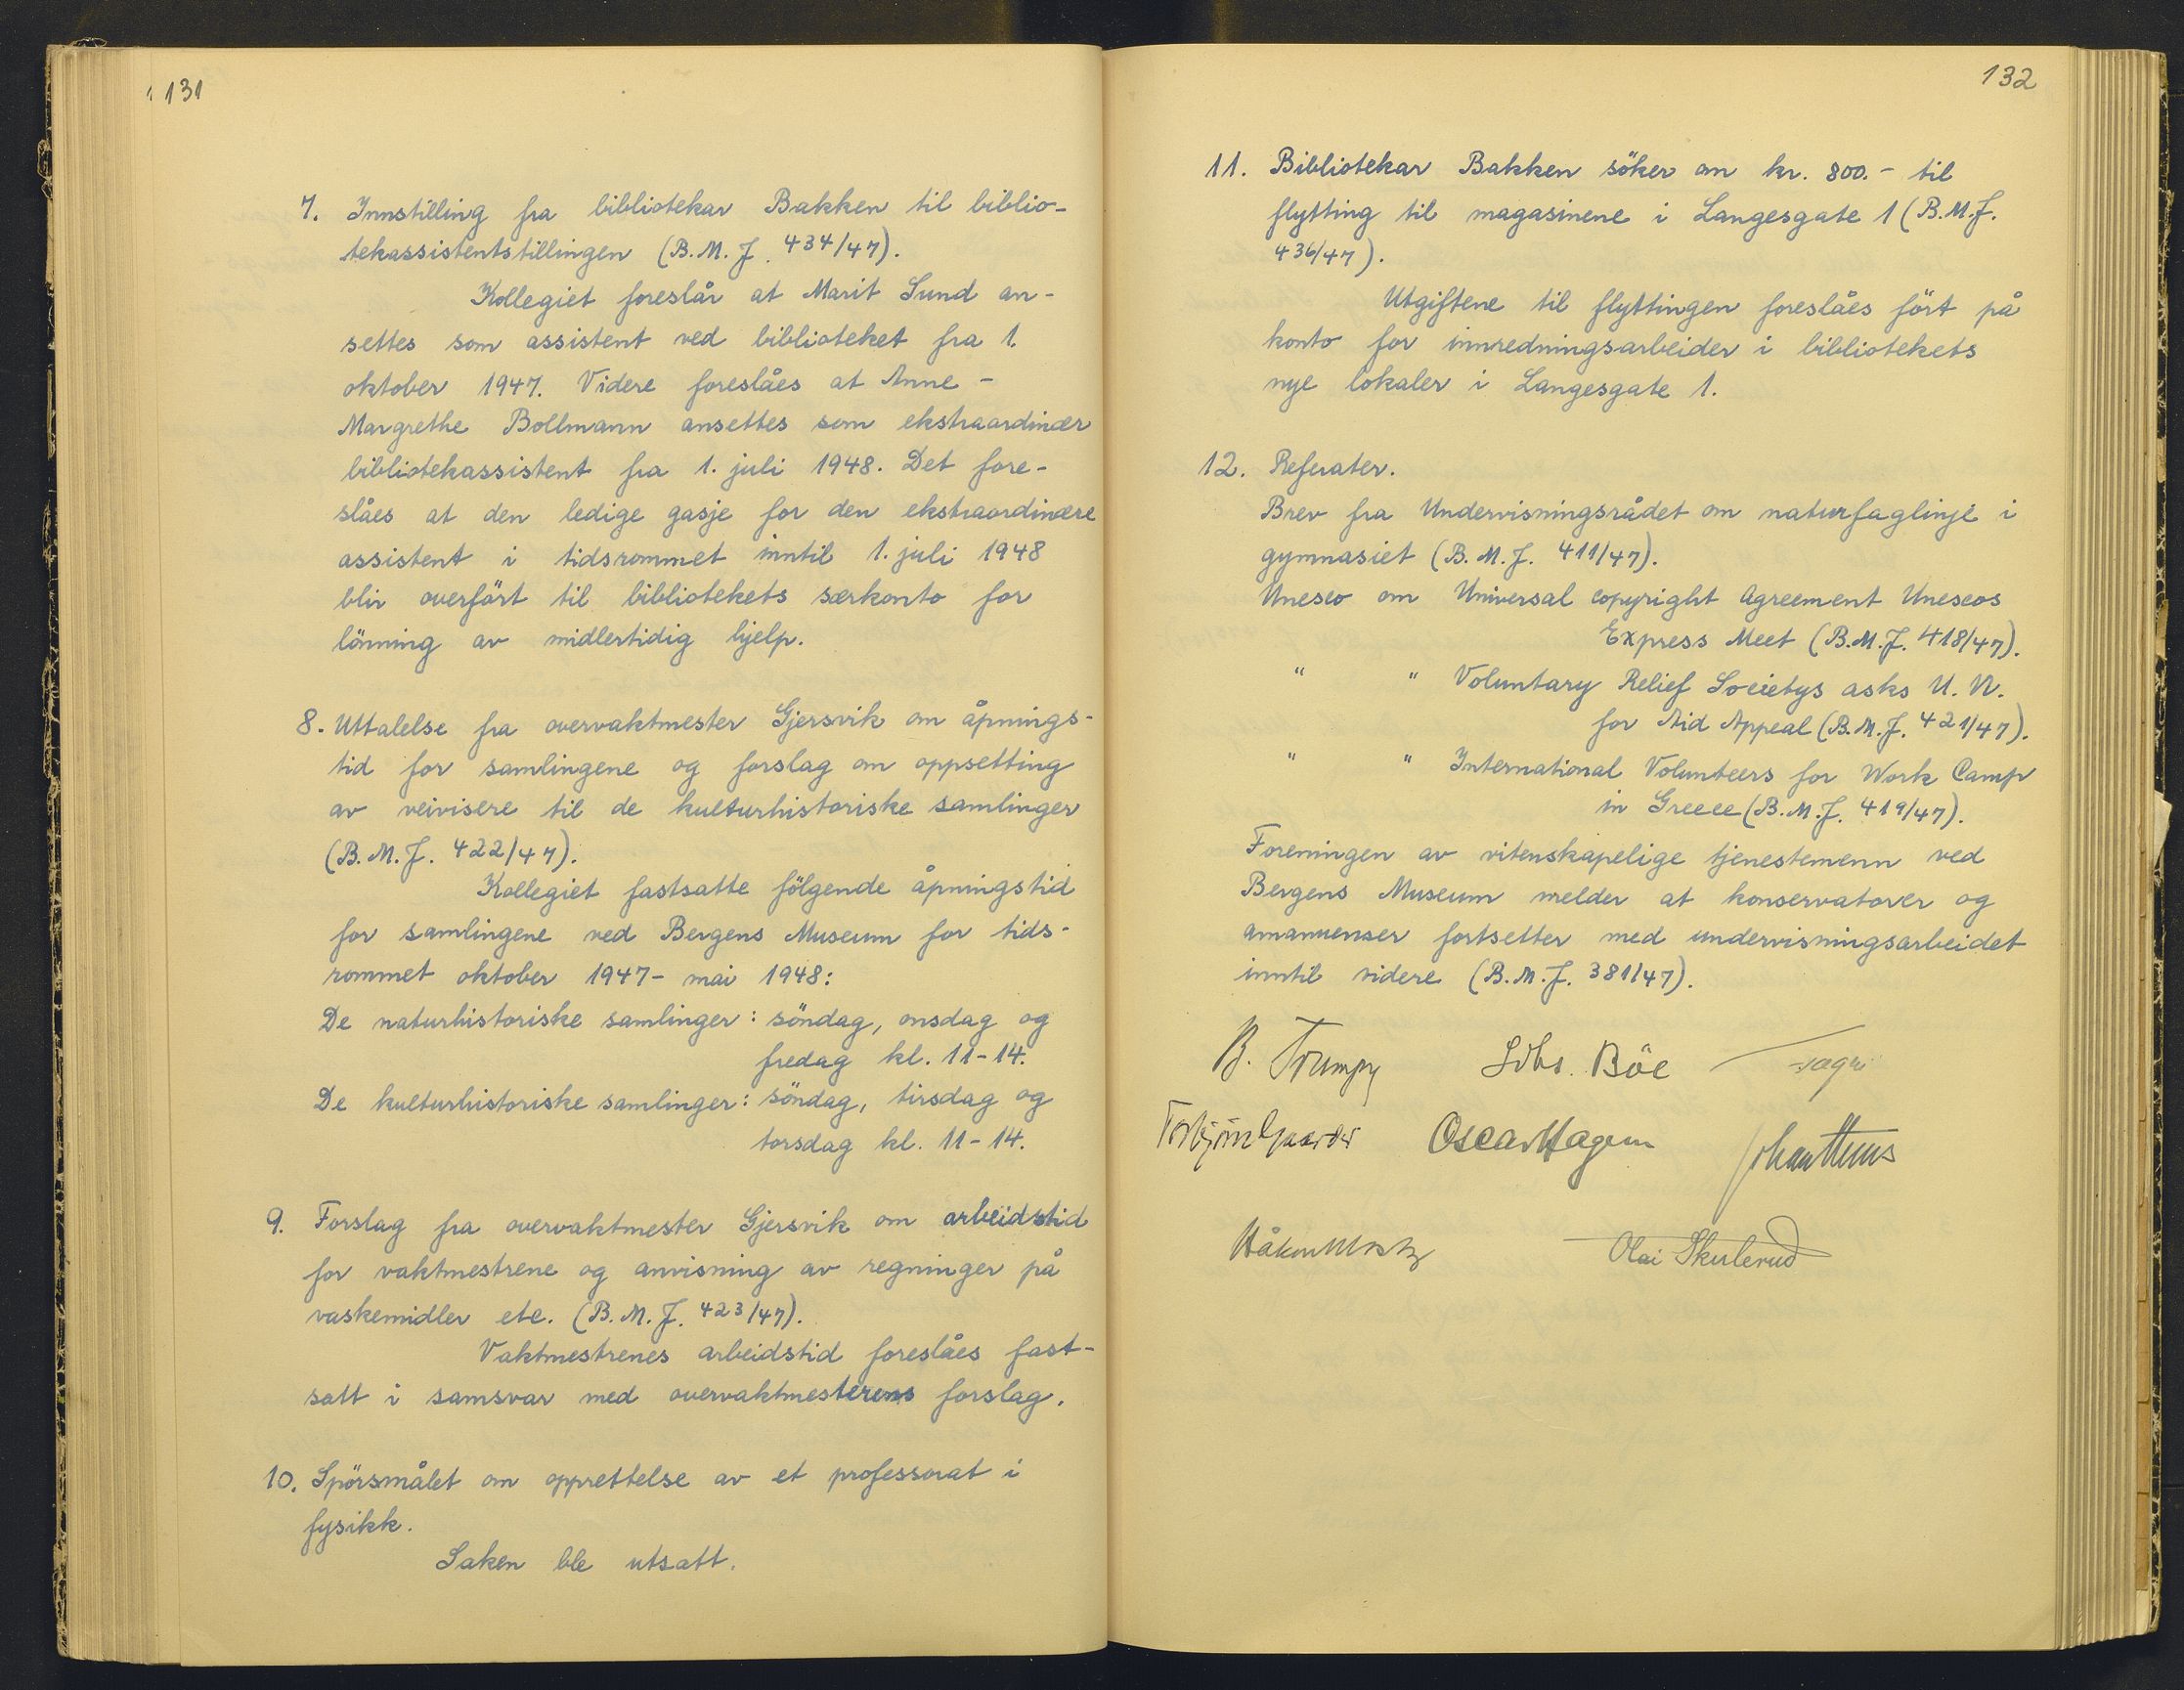 131
7. Innstilling fra bibliotekar Bakken til biblio-
tekassistentstillingen (B.M.J. 434/47).
Kollegiet foreslår at Marit Sund an-
settes som assistent ved biblioteket fra 1.
oktober 1947. Videre foreslåes at Anne-
Margrethe Bollmann ansettes som ekstraordinær
bibliotekassistent fra 1. juli 1948. Det fore-
slåes at den ledige gasje for den ekstraordinære
assistent i tidsrommet inntil 1. juli 1948
blir overført til bibliotekets særkonto for
lönning av midlertidig hjelp.
8. Uttalelse fra overvaktmester Gjersvik om åpnings-
tid for samlingene og forslag om oppsetting
av veivisere til de kulturhistoriske samlinger
(B.M.J. 422/47).
Kollegiet fastsatte fölgende åpningstid
for samlingene ved Bergens Museum for tids-
rommet oktober 1947- mai 1948:
De naturhistoriske samlinger: söndag, onsdag og
fredag kl. 11-14.
De kulturhistoriske samlinger: söndag, tirsdag og
torsdag kl. 11-14.
9. Forslag fra overvaktmester Gjersvik om arbeidstid
for vaktmestrene og anvisning av regninger på
vaskemidler etc. (B.M.J. 423/47).
Vaktmestrenes arbeidstid foreslåes fast-
satt i samsvar med overvaktmesterens forslag.
10. Spörsmålet om opprettelse av et professorat i
fysikk.
Saken ble utsatt.
132
11. Bibliotekar Bakken söker om kr. 800.- til
flytting til magasinene i Langesgate 1 (B.M.J.
436/47).
Utgiftene til flyttingen foreslåes fört på
konto for innredningsarbeider i bibliotekets
nye lokaler i Langesgate 1.
12. Referater.
Brev fra Undervisningsrådet om naturfaglinje i
gymnasiet (B.M.J. 411/47).
Unesco om Universal copyright Agreement Unescos
Express Meet (B.M.J. 418/47).
" " Voluntary Relief Societys asks U.N.
for Aid Appeal (B.M.J. 421/47).
" " International Volunteers for Work Camp
in Greece (B.M.J. 419/47).
Foreningen av vitenskapelige tjenestemenn ved
Bergens Museum melder at konservatorer og
amanuenser fortsetter med undervisningsarbeidet
inntil videre (B.M.J. 381/47).
B. Trumpy Johs. Böe
Torbjörn Gaarder Oscar Hagem
Olai Skulerud